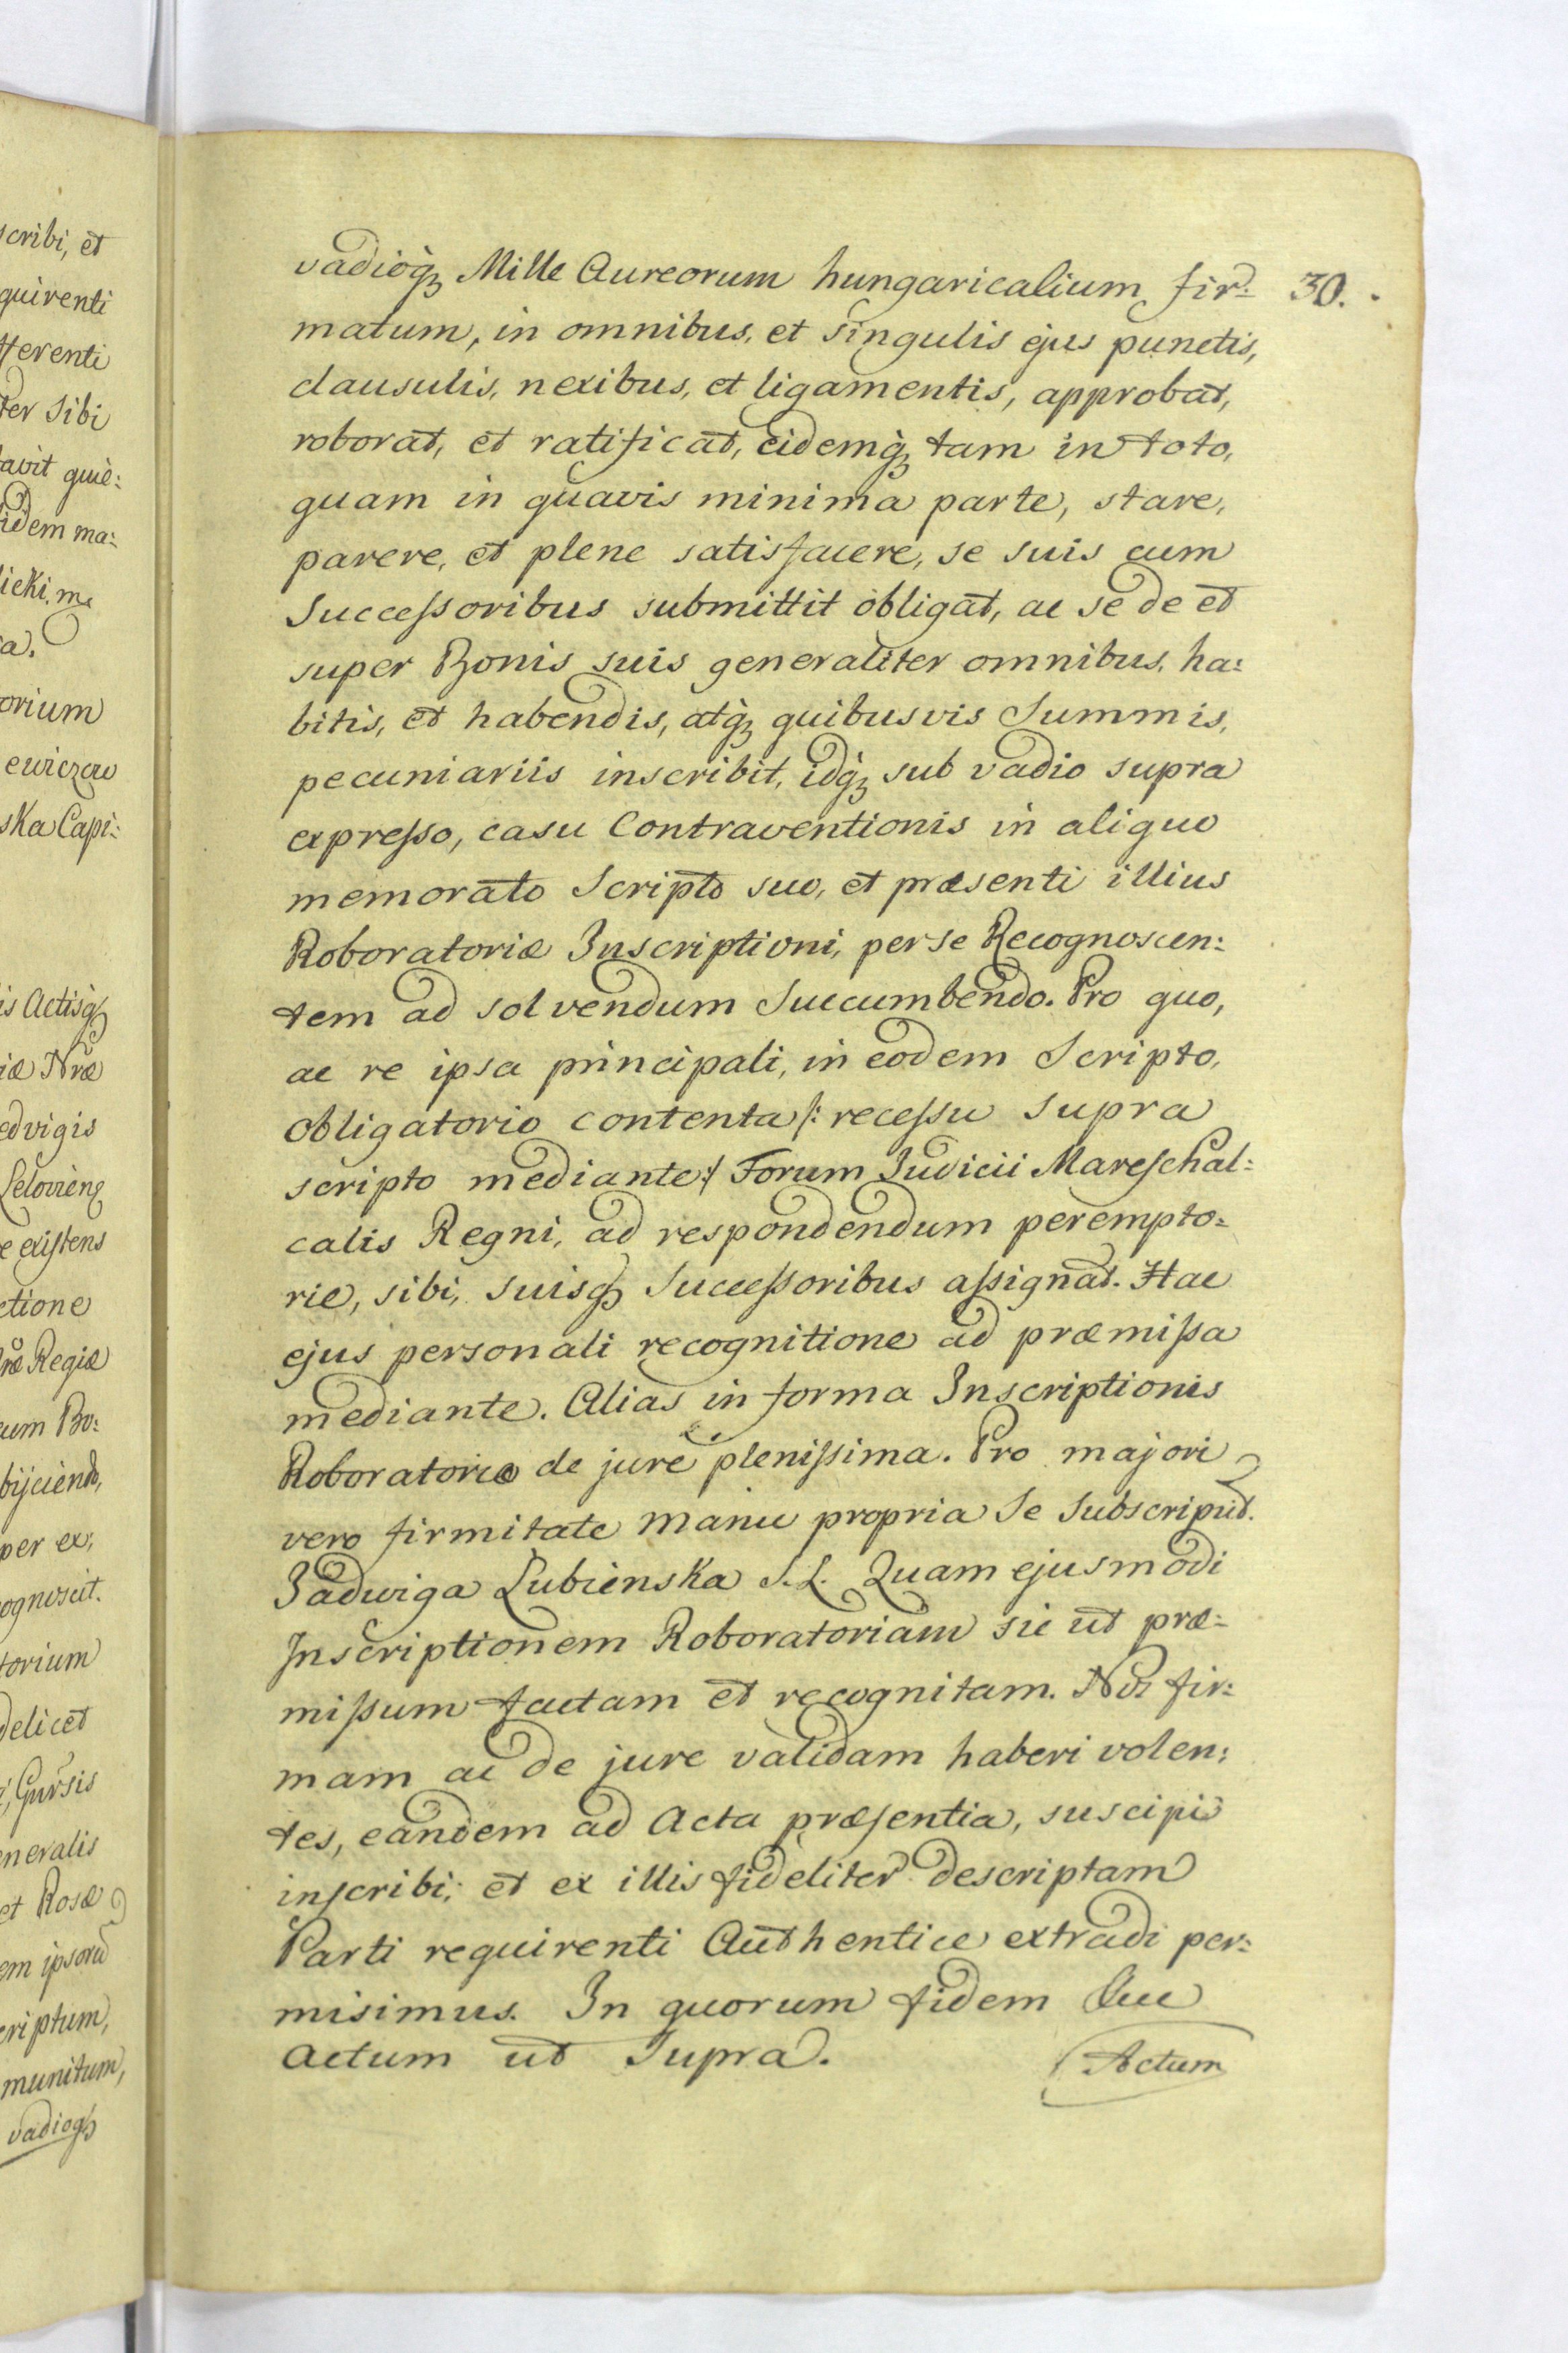 scribi, et
quirenti
fferenti
ter Sibi
tavit quie:
idem ma:
licki. m
a.
orium
ewiczow
ska Capi:
is Actisqꝫ
iæ Nræ
edvigis
Leloviens
e existens
ctione
Nræ Regiæ
cum Bo:
bijciendo,
per ex:
cognoscit.
torium
delicet
Gursis
eneralis
et Rosæ
em ipsoru
criptum,
munitum,
vadioqꝫ
vadioqꝫ Mille Aureorum hungaricalium fir: 30.
matum, in omnibus, et singulis ejus punctis,
clausulis, nexibus, et ligamentis, approbat,
roborat, et ratificat, eidemqꝫ tam in toto,
quam in quavis minima parte, stare,
parere, et plene satisfacere, se suis cum
Successoribus submittit obligat, ac se de et
super Bonis suis generaliter omnibus, ha:
bitis, et habendis, atqꝫ quibusvis Summis,
pecuniariis inscribit, idqꝫ sub vadio supra
expresso, casu Contraventionis in aliquo
memorato Scripto suo, et præsenti illius
Roboratoriæ Inscriptioni, per se Recognoscen:
tem ad solvendum Succumbendo. Pro quo,
ac re ipsa principali, in eodem Scripto,
Obligatorio contenta /: recessu supra
scripto mediante :/ Forum Judicii Mareschal:
calis Regni, ad respondendum perempto:
rie, sibi, suisqꝫ Successoribus assignat. Hac
ejus personali recognitione ad præmissa
mediante. Alias in forma Inscriptionis
Roboratoriæ de jure plenissima. Pro majori
vero firmitate manu propria Se Subscripsit.
Jadwiga Lubienska S.L. Quam ejusmodi
Inscriptionem Roboratoriam sic ut præ:
missum factam et recognitam. Nos fir:
mam ac de jure validam haberi volen:
tes, eandem ad Acta præsentia, suscipi
inscribi; et ex illis fideliter descriptam
Parti requirenti Authentice extradi per:
misimus. In quorum fidem &cc
Actum ut Supra.
Actum